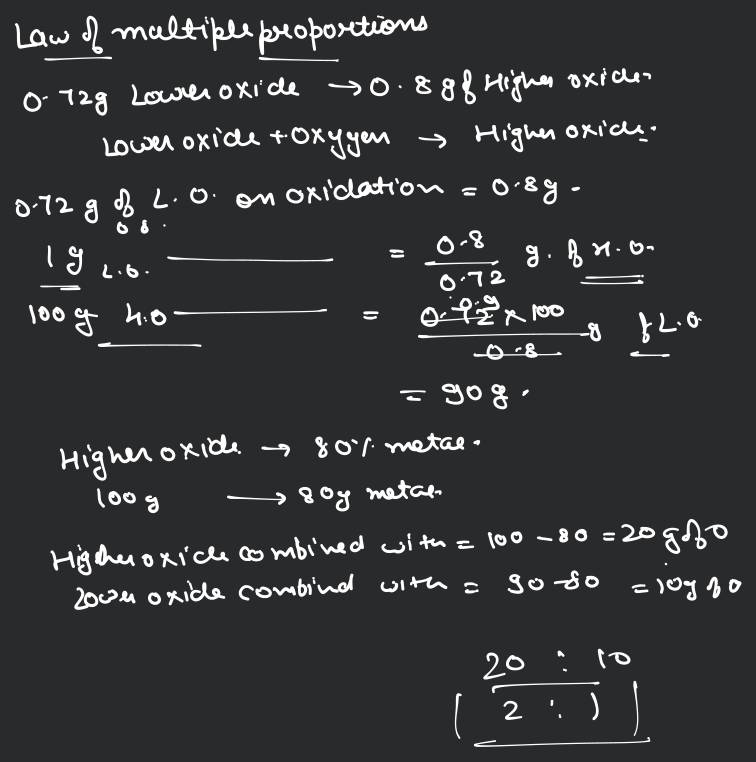 Law of multiple proportions
0.72g Lower oxide → 0.8 g of Higher oxide.
Lower oxide + Oxygen → Higher oxide.
0.72 g of L.O. on oxidation = 0.8g.
1g L.O. = 0.8/0.72 g. of H.O.
100 g H.O = 0.72 × 100/0.8 g of L.O
= 90g.
Higher oxide → 80% metal.
100g → 80g metal
Higher oxide combined with = 100 - 80 = 20 g of O
Lower oxide combined with = 90 - 80 = 10g of O
20 : 10
2 : 1